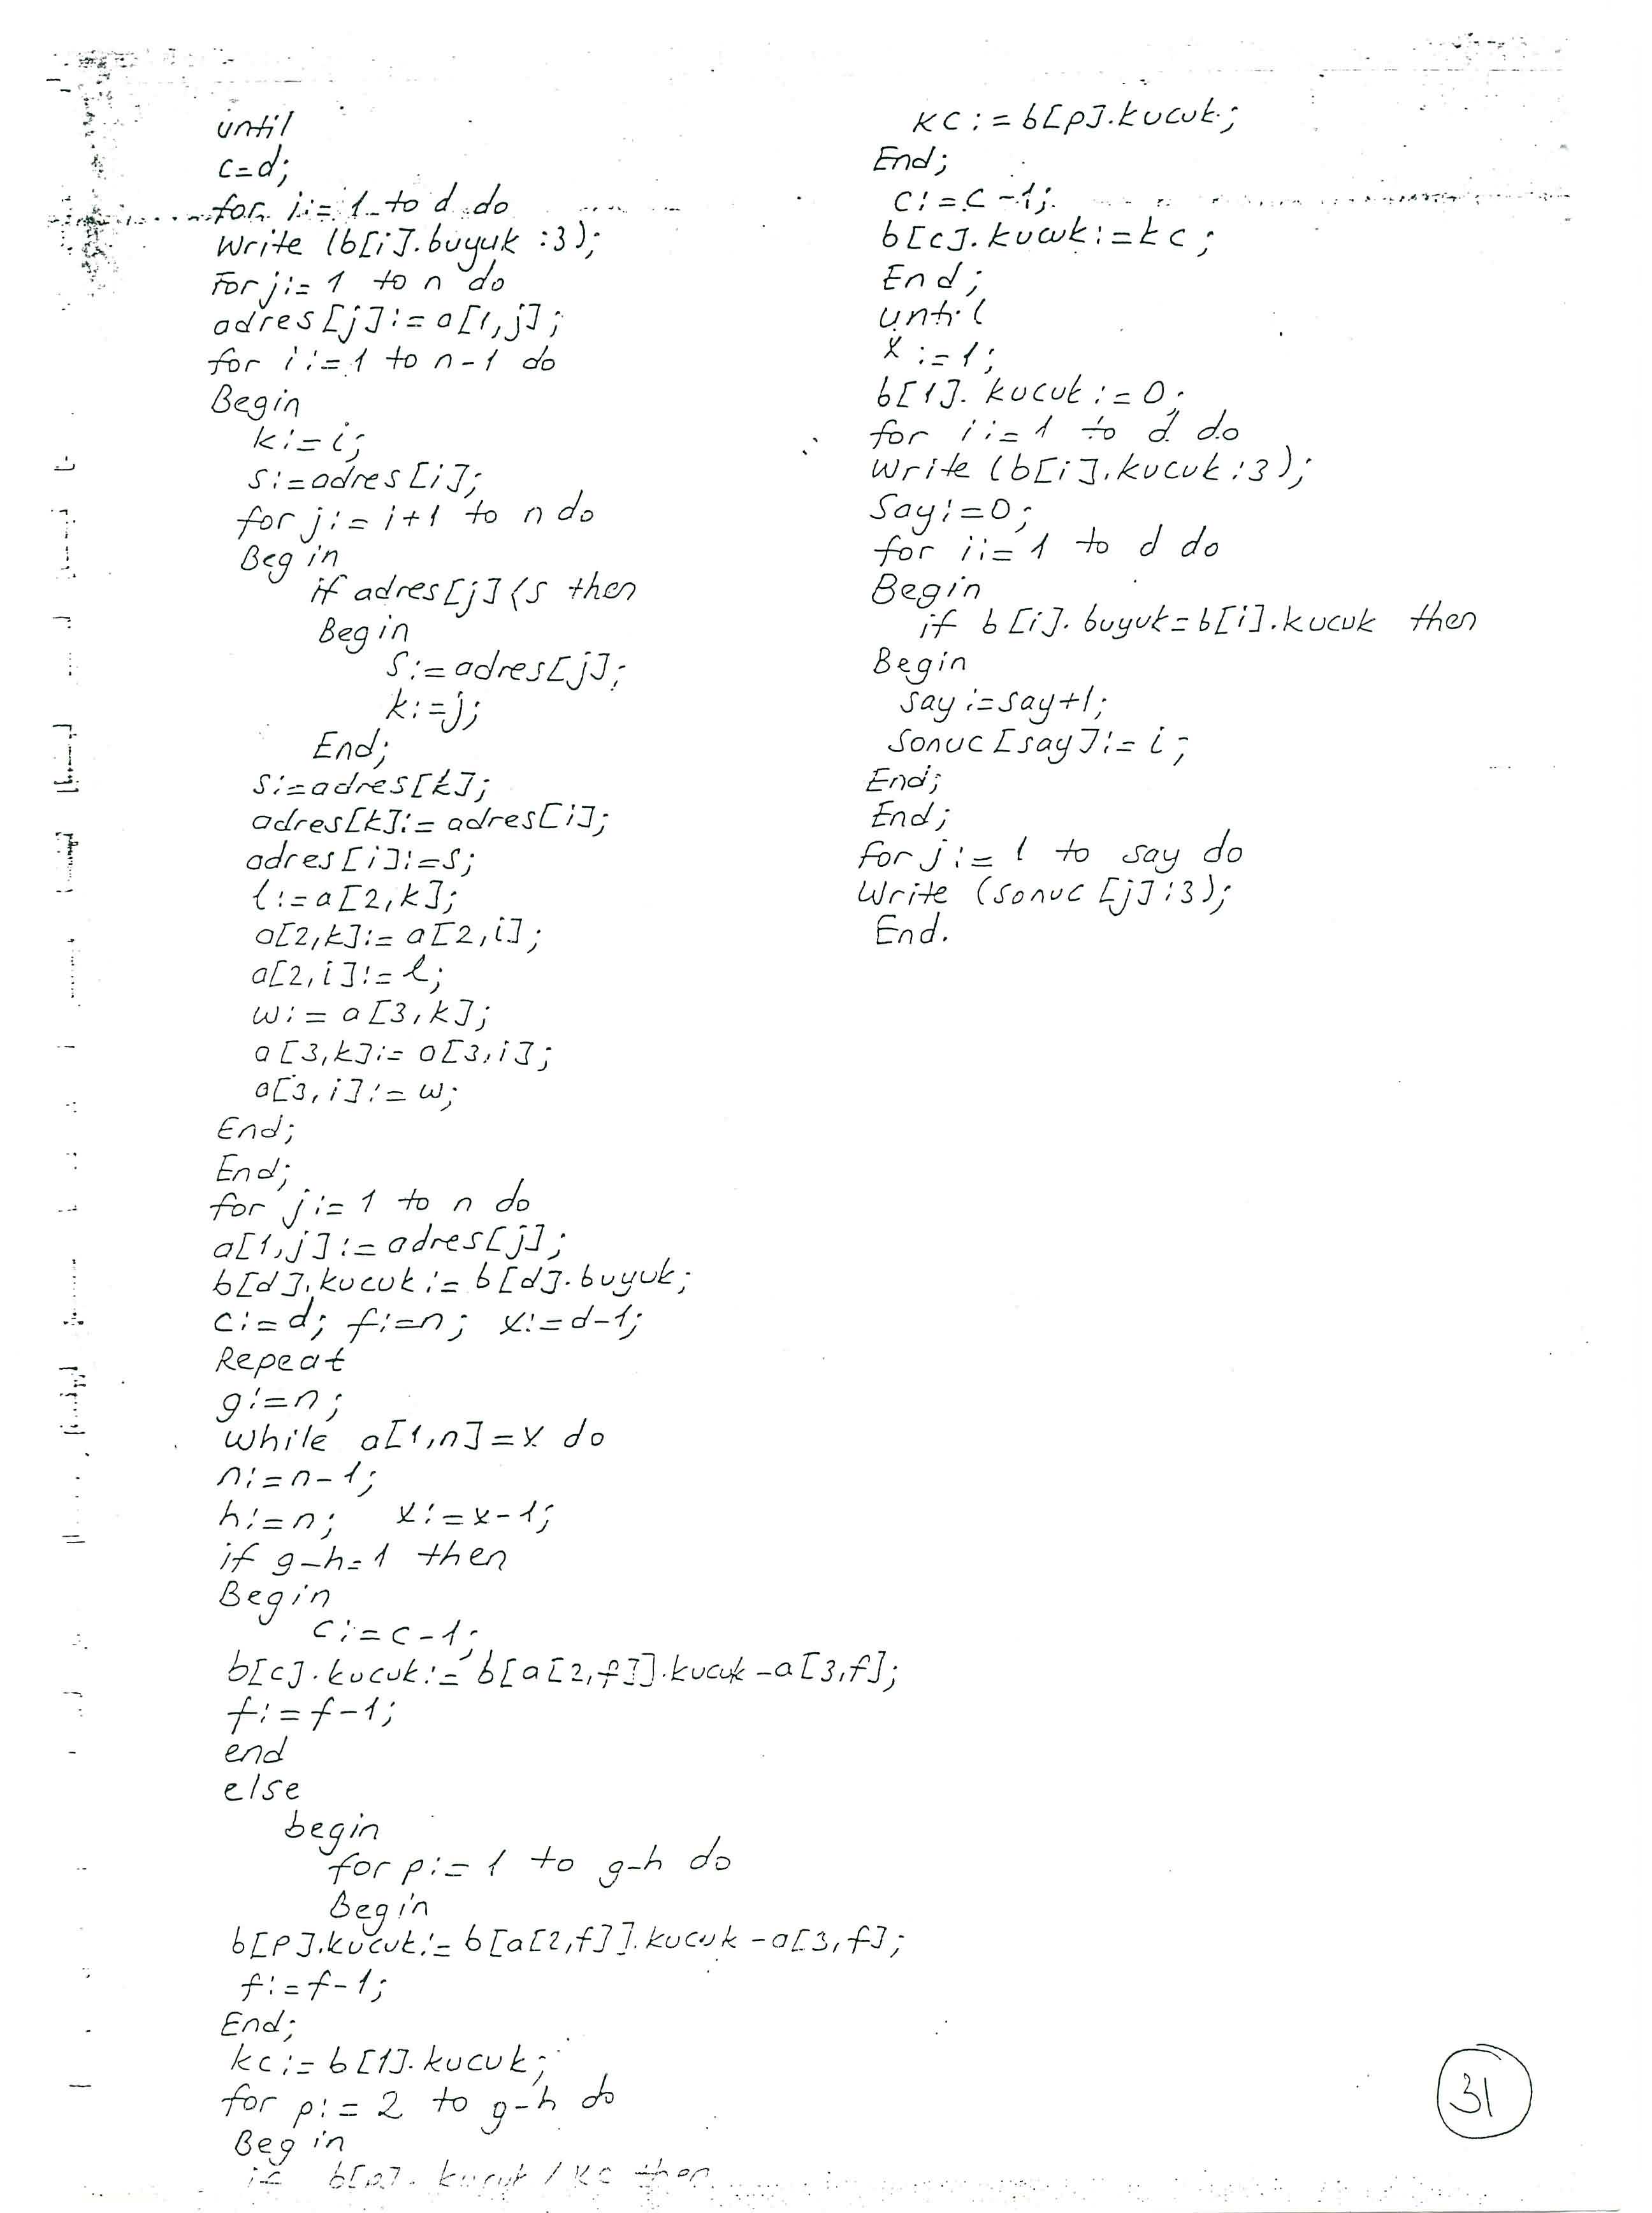 until
c=d;
for i:=1 to d do
Write (b[i].buyuk :3);
For j:= 1 to n do
adres [j]:=a[1,j];
for i:=1 to n-1 do
Begin
k:=i;
s:=adres[i];
for j:=i+1 to n do
Begin
if adres[j]<s then
Begin
s:=adres[j];
k:=j;
End;
s:=adres[k];
adres[k]:=adres[i];
adres[i]:=s;
l:=a[2,k];
a[2,k]:=a[2,i];
a[2,i]:=l;
w:=a[3,k];
a[3,k]:=a[3,i];
a[3,i]:=w;
End;
End;
for j:=1 to n do
a[1,j]:=adres[j];
b[d].kucuk:=b[d].buyuk;
c:=d; f:=n; x:=d-1;
Repeat
g:=n;
While a[1,n]=x do
n:=n-1;
h:=n; x:=x-1;
if g-h=1 then
Begin
c:=c-1;
b[c].kucuk:=b[a[2,f]].kucuk-a[3,f];
f:=f-1;
end
else
begin
for p:=1 to g-h do
Begin
b[p].kucuk:=b[a[2,f]].kucuk-a[3,f];
f:=f-1;
End;
kc:=b[1].kucuk;
for p:=2 to g-h do
Begin
if b[p].kucuk < kc then
kc:=b[p].kucuk;
End;
c:=c-1;
b[c].kucuk:=kc;
End;
until
x:=1;
b[1].kucuk:=0;
for i:=1 to d do
Write (b[i].kucuk:3);
Say:=0;
for i:=1 to d do
Begin
if b[i].buyuk=b[i].kucuk then
Begin
say:=say+1;
sonuc[say]:=i;
End;
End;
for j:=1 to say do
Write (sonuc[j]:3);
End.
31